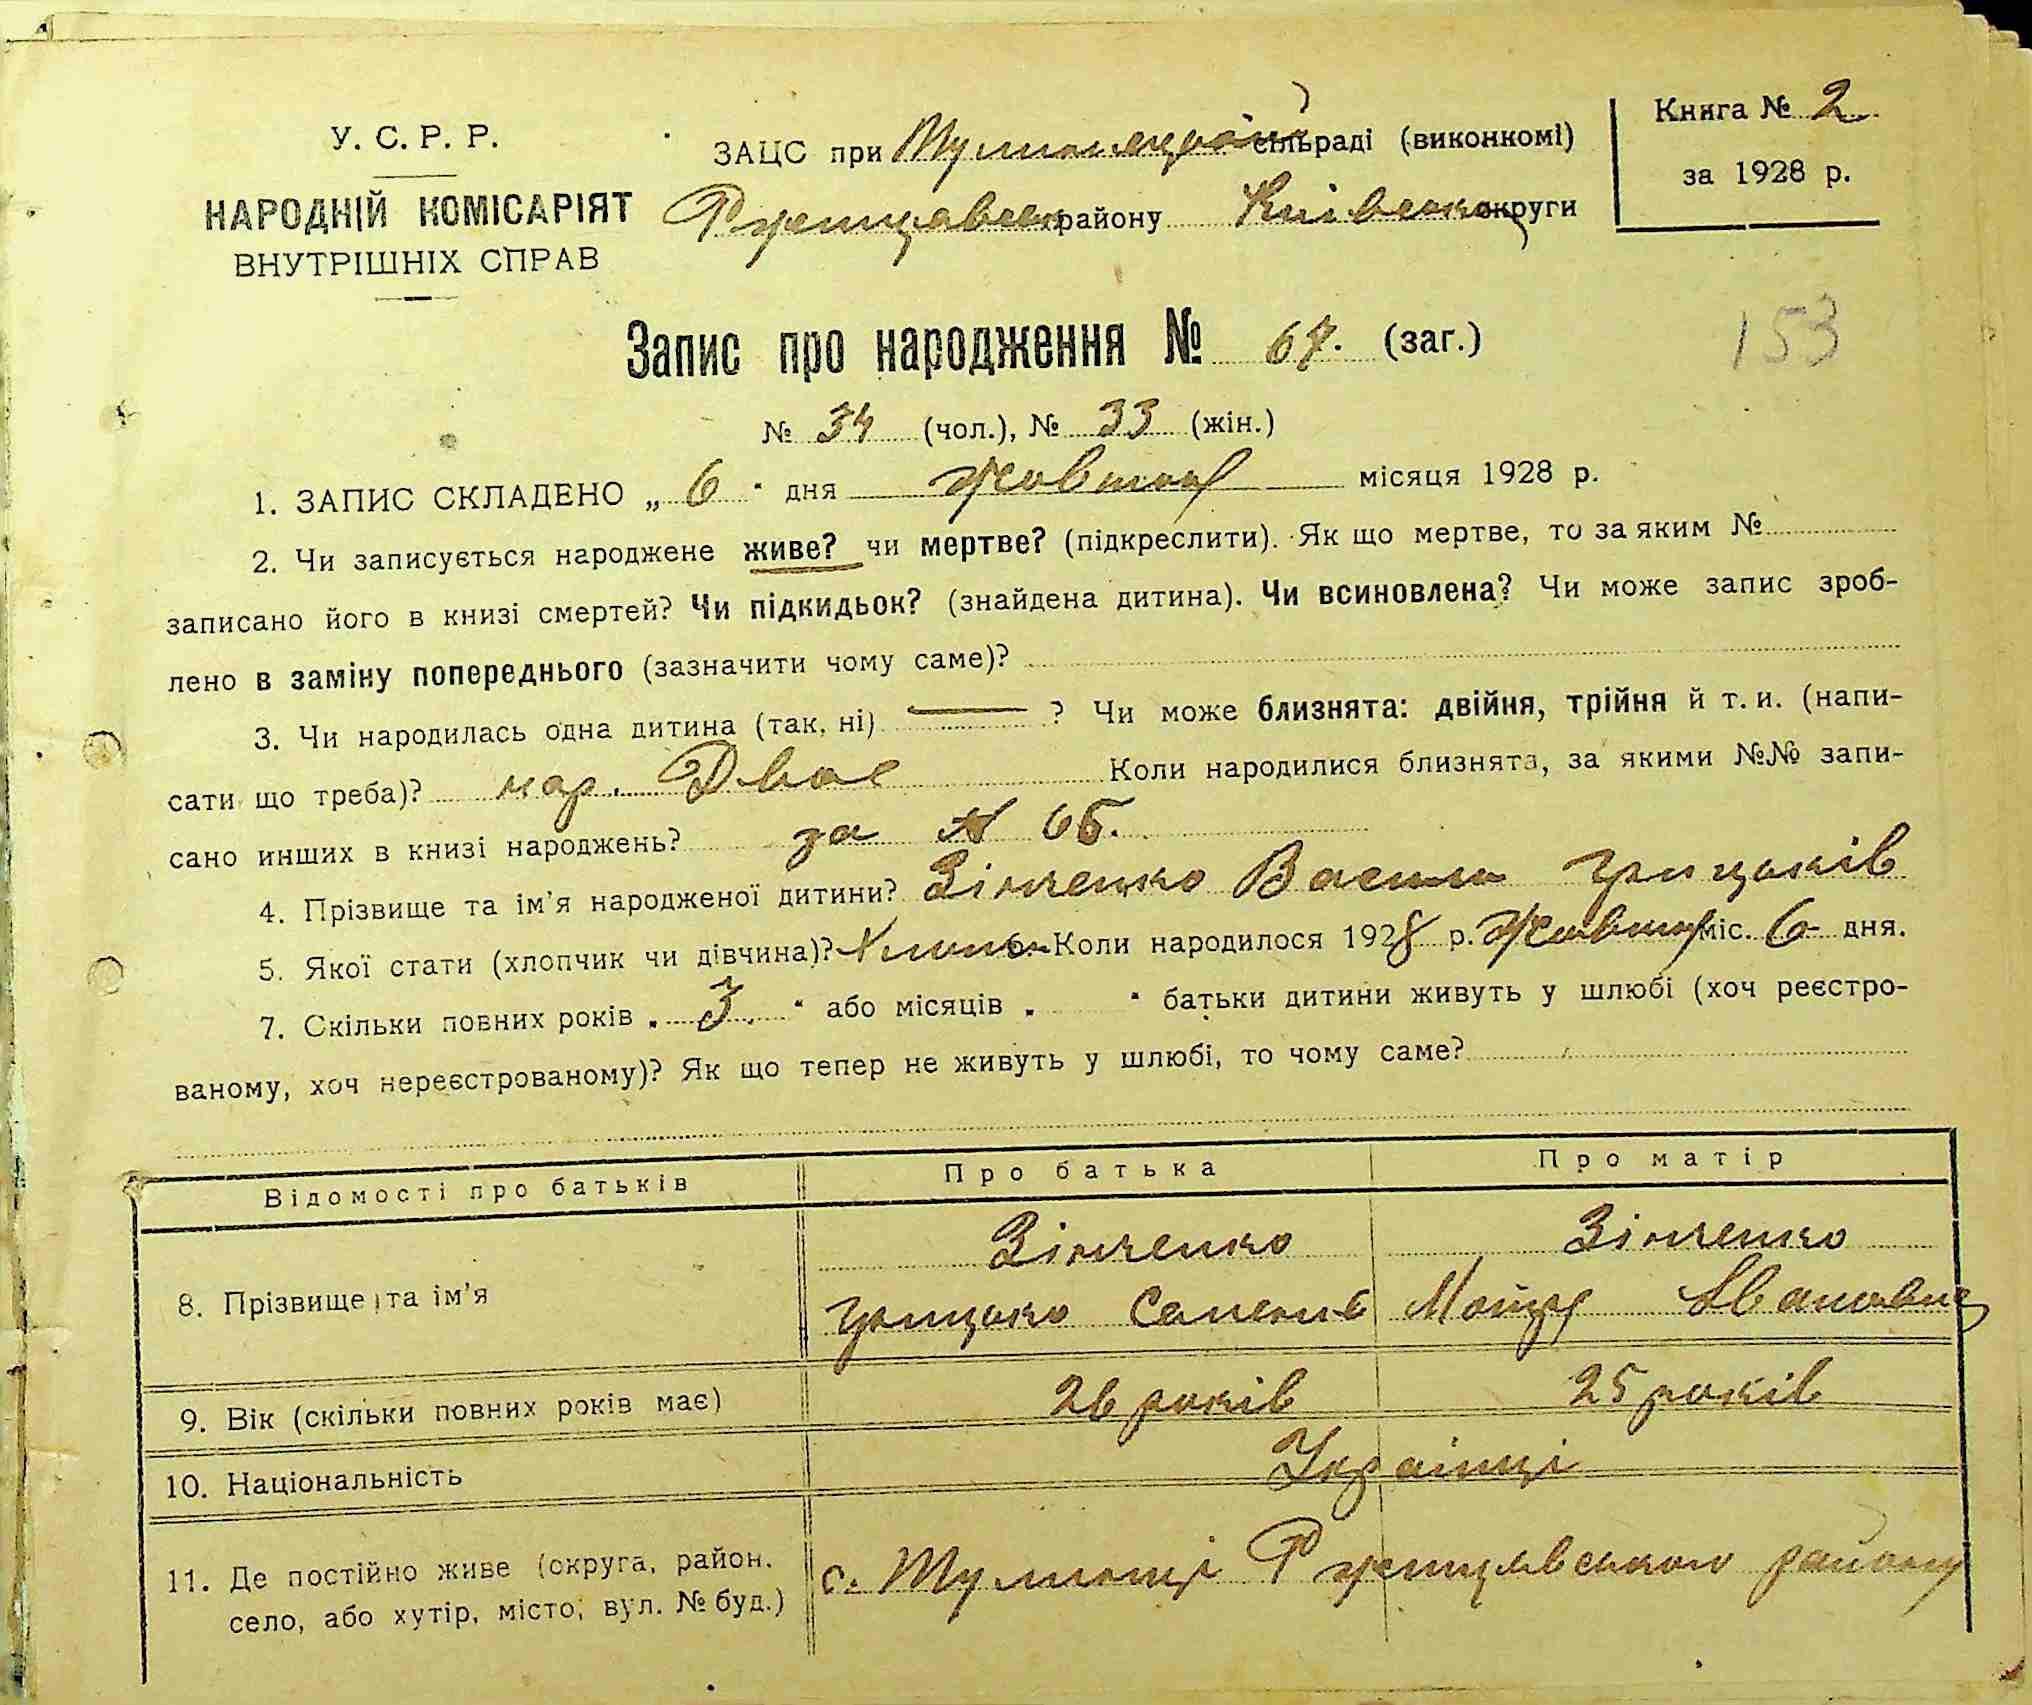 У. С. Р. Р.
НАРОДНІЙ КОМІСАРІЯТ
ВНУТРІШНІХ СПРАВ
ЗАЦС при сільраді (виконкомі)
району округи
Книга № 2
за 1928 р.
153
Запис про народження № 67. (заг.)
№ 34 (чол.), № 33 (жін.)
1. ЗАПИС СКЛАДЕНО „ 6 " дня Жовтня місяця 1928 р.
2. Чи записується народжене живе? чи мертве? (підкреслити). Як що мертве, то за яким №
записано його в книзі смертей? Чи підкидьок? (знайдена дитина). Чи всиновлена? Чи може запис зроб-
лено в заміну попереднього (зазначити чому саме)?
3. Чи народилась одна дитина (так, ні) — ? Чи може близнята: двійня, трійня й т. и. (напи-
сати що треба)? нар. Двоє Коли народилися близнята, за якими №№ запи-
сано инших в книзі народжень? за № 66.
4. Прізвище та ім'я народженої дитини? Зінченко Василь Грицьків
5. Якої стати (хлопчик чи дівчина)? Коли народилося 1928 р. Жовтня міс. 6 дня.
7. Скільки повних років „ 3 " або місяців „ " батьки дитини живуть у шлюбі (хоч реєстро-
ваному, хоч нереєстрованому)? Як що тепер не живуть у шлюбі, то чому саме?
Відомості про батьків Про батька Про матір
8. Прізвище та ім'я
Зінченко Зінченко
Грицько Івановна
9. Вік (скільки повних років має) 26 років 25 років
10. Національність Українці
11. Де постійно живе (округа, район.
село, або хутір, місто, вул. № буд.)
с. Ржищівського району